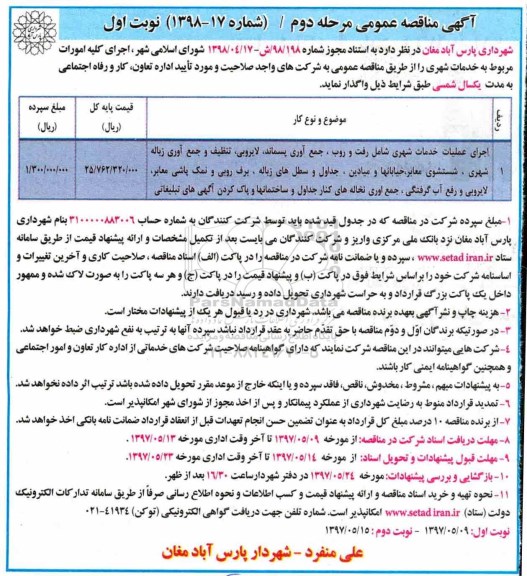 آگهی مناقصه عمومی مرحله دوم / (شماره ۱۷-۱۳۹۸) نوبت اول
شهرداری پارس آباد مغان در نظر دارد به استناد مجوز شماره ۹۸/۱۹۸/ش-۱۳۹۸/۰۴/۱۷ شورای اسلامی شهر، اجرای کلیه امورات
مربوط به خدمات شهری را از طریق مناقصه عمومی به شرکت های واجد صلاحیت و مورد تأیید اداره تعاون، کار و رفاه اجتماعی
به مدت یکسال شمسی طبق شرایط ذیل واگذار نماید.
ردیف
موضوع و نوع کار
قیمت پایه کل (ریال)
مبلغ سپرده (ریال)
۱
اجرای عملیات خدمات شهری شامل رفت و روب، جمع آوری پسماند، لایروبی، تنظیف و جمع آوری زباله
شهری، شستشوی معابر، خیابانها و میادین، جداول و سطل های زباله، برف روبی و نمک پاشی معابر،
لایروبی و رفع آب گرفتگی، جمع آوری نخاله های کنار جداول و ساختمانها و پاک کردن آگهی های تبلیغاتی
۲۵/۷۶۲/۳۲۰/۰۰۰
۱/۳۰۰/۰۰۰/۰۰۰
۱-مبلغ سپرده شرکت در مناقصه که در جدول قید شده باید توسط شرکت کنندگان به شماره حساب ۳۱۰۰۰۰۰۸۸۳۰۰۶ بنام شهرداری
پارس آباد مغان نزد بانک ملی مرکزی واریز و شرکت کنندگان می بایست بعد از تکمیل مشخصات و ارائه پیشنهاد قیمت از طریق سامانه
ستاد www.setadiran.ir، سپرده و یا ضمانت نامه شرکت در مناقصه را در پاکت (الف) اسناد مناقصه، صلاحیت کاری و آخرین تغییرات و
اساسنامه شرکت خود را بر اساس شرایط فوق در پاکت (ب) و پیشنهاد قیمت را در پاکت (ج) و هر سه پاکت را به صورت لاک شده و ممهور
داخل یک پاکت بزرگ قرارداد و به حراست شهرداری تحویل داده و رسید دریافت دارند.
۲- هزینه چاپ و نشر آگهی بعهده برنده مناقصه می باشد. شهرداری در رد یا قبول هر یک از پیشنهادات مختار است.
۳- در صورتیکه برندگان اوّل و دوّم مناقصه با حق تقدّم حاضر به عقد قرارداد نباشد سپرده آنها به ترتیب به نفع شهرداری ضبط خواهد شد.
۴-شرکت هایی میتوانند در این مناقصه شرکت نمایند که دارای گواهینامه صلاحیت شرکت های خدماتی از اداره کار تعاون و امور اجتماعی
و همچنین گواهینامه ایمنی کار باشند.
۵- به پیشنهادات مبهم، مشروط، مخدوش، ناقص، فاقد سپرده و یا اینکه خارج از موعد مقرر تحویل داده شده باشد ترتیب اثر داده نخواهد شد.
۶- تمدید قرارداد منوط به رضایت شهرداری از عملکرد پیمانکار و پس از اخذ مجوز از شورای شهر امکانپذیر است.
۷-از برنده مناقصه ۱۰ درصد مبلغ کل قرارداد به عنوان تضمین حسن انجام تعهدات قبل از انعقاد قرارداد ضمانت نامه بانکی اخذ خواهد شد.
۸-مهلت دریافت اسناد شرکت در مناقصه: از مورخه ۱۳۹۷/۰۵/۰۹ تا آخر وقت اداری مورخه ۱۳۹۷/۰۵/۱۳.
۹- مهلت قبول پیشنهادات و تحویل اسناد: از مورخه ۱۳۹۷/۰۵/۱۴ تا آخر وقت اداری مورخه ۱۳۹۷/۰۵/۲۳.
۱۰-بازگشایی و بررسی پیشنهادات: مورخه ۱۳۹۷/۰۵/۲۴ در دفتر شهردار ساعت ۱۶/۳۰ بعد از ظهر.
۱۱-نحوه تهیه و خرید اسناد مناقصه و ارائه پیشنهاد قیمت و کسب اطلاعات و نحوه اطلاع رسانی صرفاً از طریق سامانه تدارکات الکترونیک
دولت (ستاد) www.setadiran.ir امکانپذیر است. شماره تلفن جهت دریافت گواهی الکترونیکی (توکن) ۴۱۹۳۴-۰۲۱
نوبت اول: ۱۳۹۷/۰۵/۰۹ - نوبت دوم: ۱۳۹۷/۰۵/۱۵
علی منفرد - شهردار پارس آباد مغان